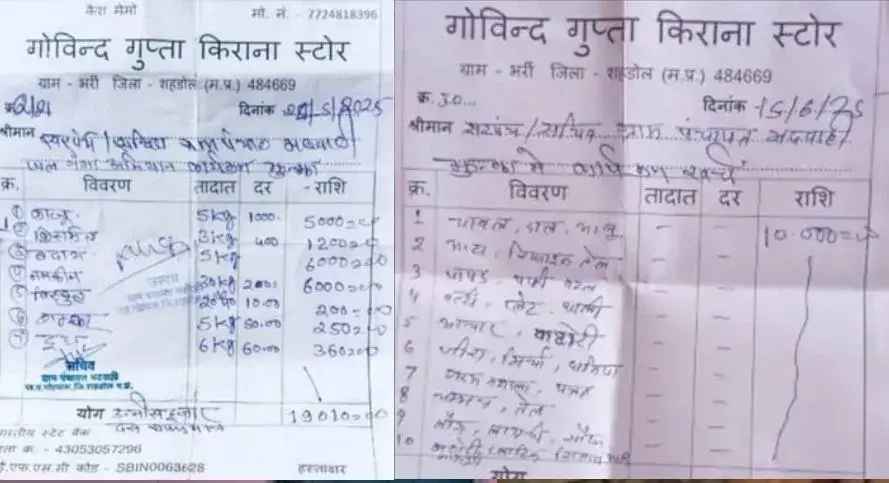 केश मेमो
मो. नं. - 7724818396
गोविन्द गुप्ता किराना स्टोर
ग्राम - भर्री जिला - शहडोल (म.प्र.) 484669
क्र.
दिनांक 5/2025
श्रीमान
जल गंगा अभियान
क्र. विवरण तादात दर राशि
① काजू 5kg 1000 5000=00
② किसमिस 3kg 400 1200=00
③ बदाम 5kg 6000=00
④ नमकीन 30kg 200 6000=00
⑤ बिस्कुट 20 10.00 200=00
⑥ 5kg 50.00 250=00
⑦ दूध 6kg 60.00 360=00
सचिव
ग्राम पंचायत भदवाही
योग उन्नीस हजार
दस रुपया मात्र
19010=00
भारतीय स्टेट बैंक
खाता क. - 43053057296
ई.एफ.एस.सी कोड - SBIN0063628
हस्ताक्षर
गोविन्द गुप्ता किराना स्टोर
ग्राम - भर्री जिला - शहडोल (म.प्र.) 484669
क्र. 30...
दिनांक -15/6/25
श्रीमान सरपंच/सचिव ग्राम पंचायत भदवाही
क्र. विवरण तादात दर राशि
1 चावल, दाल, आलू - - 10.000=00
2 आटा, रिफाइन्ड तेल - -
3 पापड़ - -
4 प्लेट, थाली - -
5 अचार - -
6 जीरा, मिर्चा, धनिया - -
7 गरम मसाला - -
8 तेल - -
9 लौंग, लायची, सौंफ - -
10 - -
योग